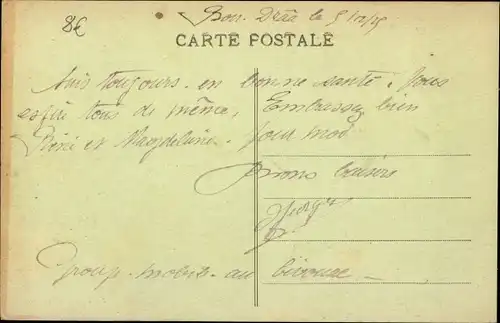 8€
Bou. Drâa le 5/12/25
CARTE POSTALE
Suis toujours en bonne santé. Vous
espère tous de même.
Embrassez bien
Réné et Magdeleine. pour moi
bons baisers
Group. mobile au bivouac